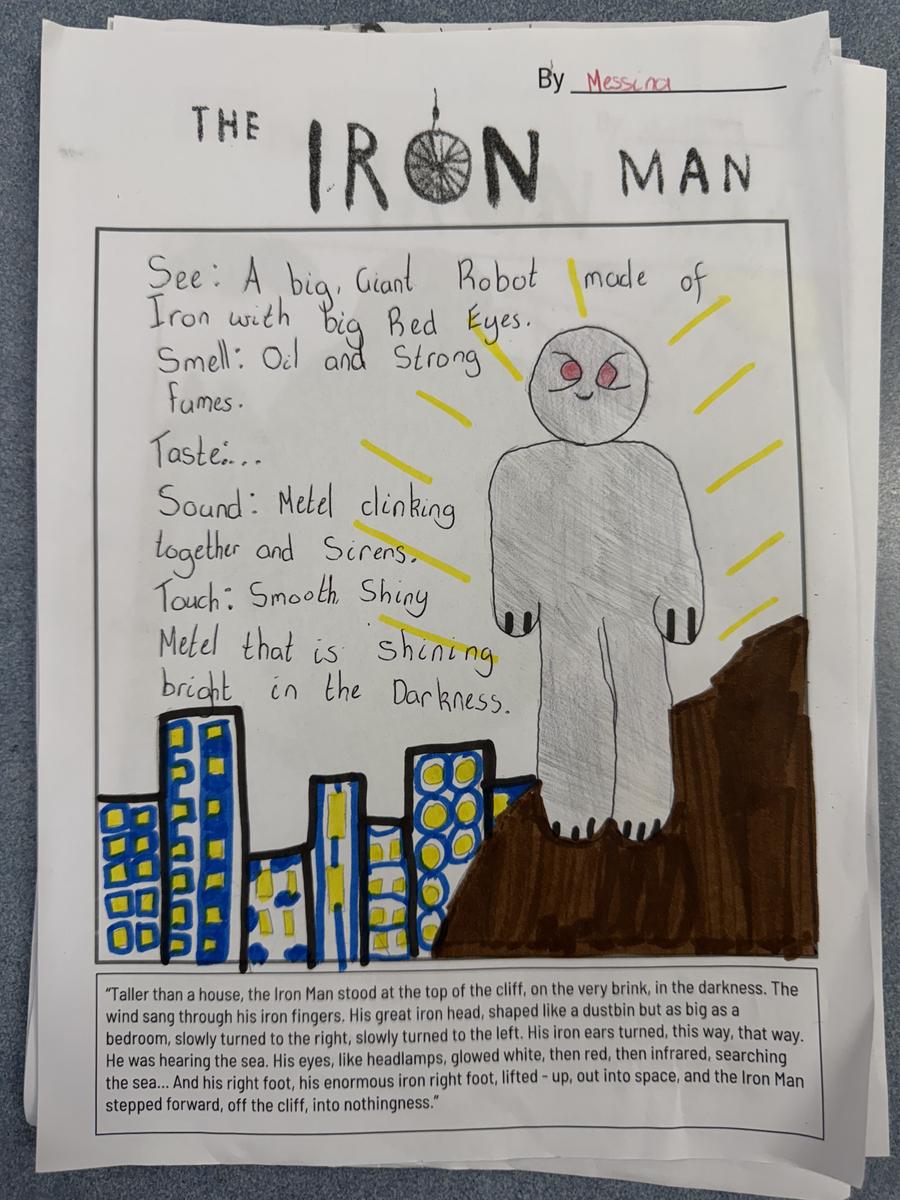 By Messina
THE IRON MAN
See: A big, Giant Robot made of
Iron with big Red Eyes.
Smell: Oil and Strong
fumes.
Taste:...
Sound: Metel clinking
together and Sirens.
Touch: Smooth Shiny
Metel that is shining
bright in the Darkness.
"Taller than a house, the Iron Man stood at the top of the cliff, on the very brink, in the darkness. The
wind sang through his iron fingers. His great iron head, shaped like a dustbin but as big as a
bedroom, slowly turned to the right, slowly turned to the left. His iron ears turned, this way, that way.
He was hearing the sea. His eyes, like headlamps, glowed white, then red, then infrared, searching
the sea... And his right foot, his enormous iron right foot, lifted - up, out into space, and the Iron Man
stepped forward, off the cliff, into nothingness."